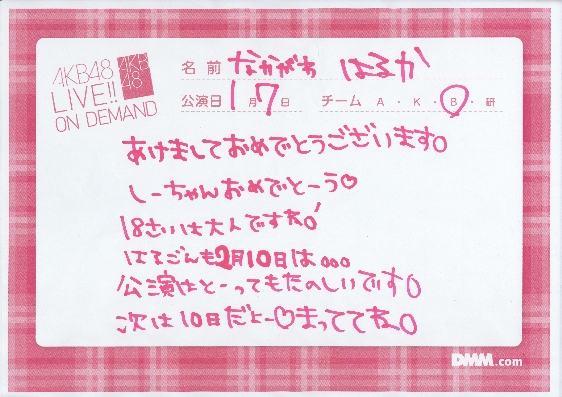 AKB48
LIVE!!
ON DEMAND
AKB
48
名前 なかがわ はるか
公演日 1月7日 チーム A・K・B・研
あけましておめでとうございます。
しーちゃんおめでとーう♡
18さいは大人ですね。
はるごんも2月10日は。。。
公演はとーってもたのしいです。
次は10日だよー♡まっててね。
DMM.com